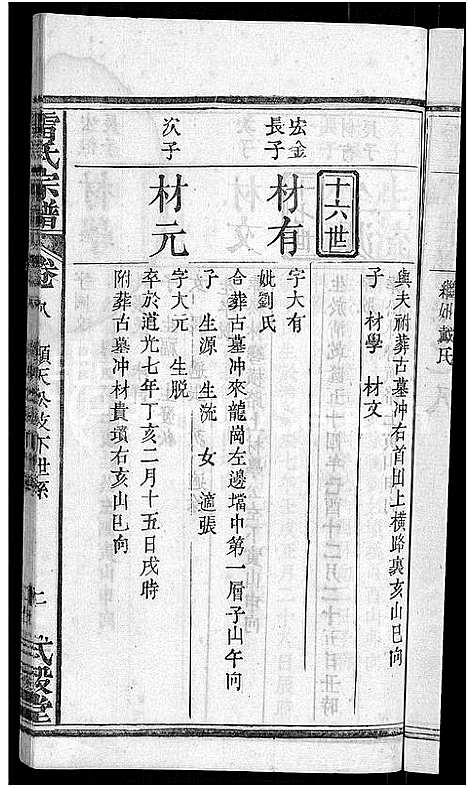 繼妣戴氏
與夫祔葬古墓冲右首田上橫路裏亥山巳向
子 材學 材文
十六世
宏金長子
材有
字大有
妣劉氏
合葬古墓冲來龍崗左邊壋中第一層子山午向
子 生源 生洗 女適張
次子
材元
字大元 生脱
卒於道光七年丁亥二月十五日戌時
附葬古墓冲材貴墳右亥山巳向
雷氏宗譜
卷
順天公支下世系
武毅堂